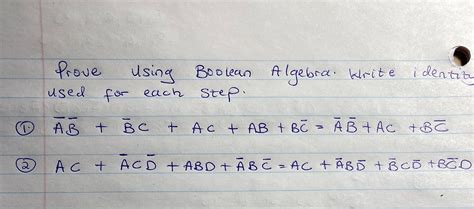 Prove Using Boolean Algebra. Write identity
used for each step.
① A̅B̅ + B̅C + AC + AB + BC̅ = A̅B̅ + AC + BC̅
② AC + A̅CD̅ + ABD + A̅B̅C̅ = AC + A̅BD̅ + B̅CD̅ + BC̅D